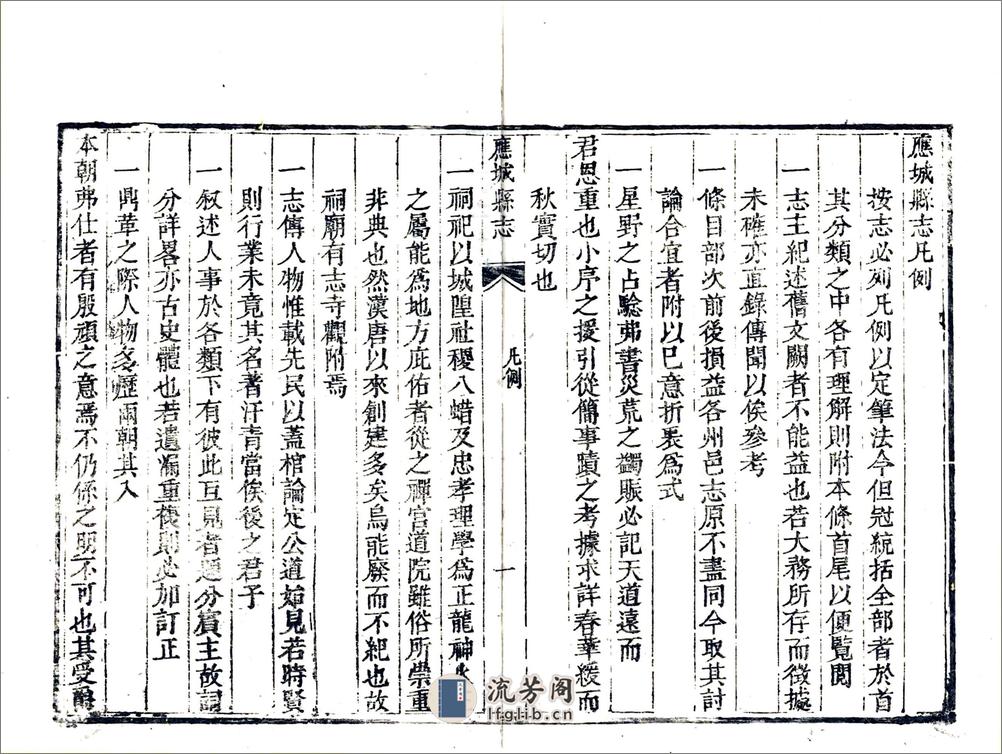 應城縣志凡例
按志必列凡例以定筆法今但冠統括全部者於首
其分類之中各有理解則附本條首尾以便覽閱
一志主紀述舊文闕者不能益也若大務所存而徵據
未確亦直錄傳聞以俟參考
一條目部次前後損益各州邑志原不盡同今取其討
論合宜者附以已意折衷爲式
一星野之占驗弗書災荒之蠲賑必記天道遠而
君恩重也小序之援引從簡事蹟之考據求詳春華緩而
秋實切也
應城縣志
凡例
一
一祠祀以城隍社稷八蜡及忠孝理學爲正龍神火
之屬能爲地方庇佑者從之禪宮道院雖俗所崇重
非典也然漢唐以來創建多矣烏能廢而不紀也故
祠廟有志寺觀附焉
一志傳人物惟載先民以蓋棺論定公道如見若時賢
則行業未竟其名著汗青當俟後之君子
一叙述人事於各類下有彼此互見者題分賓主故詞
分詳畧亦古史體也若遺漏重複則必加訂正
一鼎革之際人物多歷兩朝其入
本朝弗仕者有殷頑之意焉不仍係之明不可也其受爵
流芳阁
lfglib.cn